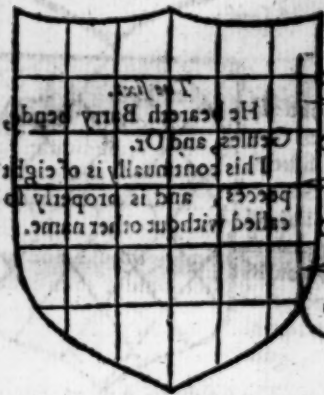 The sixt.
He beareth Barry bend,
Geules, and Or.
This continually is of eight
peeces, and is properly so
called without other name.